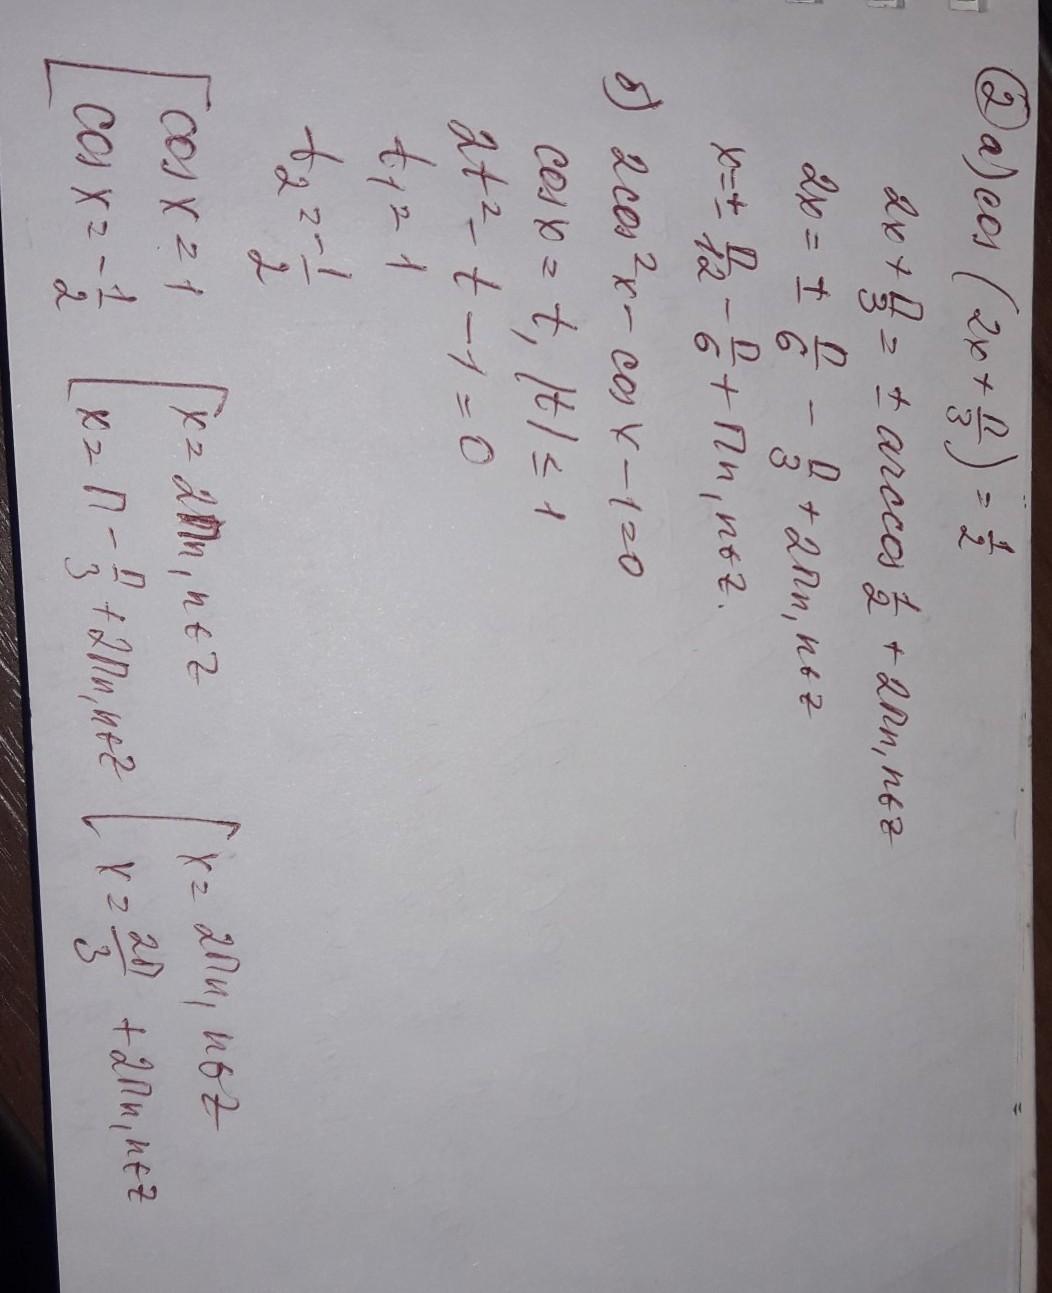 2 а) cos (2x + π/3) = 1/2
2x + π/3 = ± arccos 1/2 + 2πn, n∈z
2x = ± π/6 − π/3 + 2πn, n∈z
x = ± π/12 − π/6 + πn, n∈z.
б) 2cos²x − cos x − 1 = 0
cos x = t, |t| ≤ 1
2t² − t − 1 = 0
t₁ = 1
t₂ = −1/2
[ cos x = 1 [ x = 2πn, n∈z [ x = 2πn, n∈z
[ cos x = −1/2 [ x = π − π/3 + 2πn, n∈z [ x = 2π/3 + 2πn, n∈z